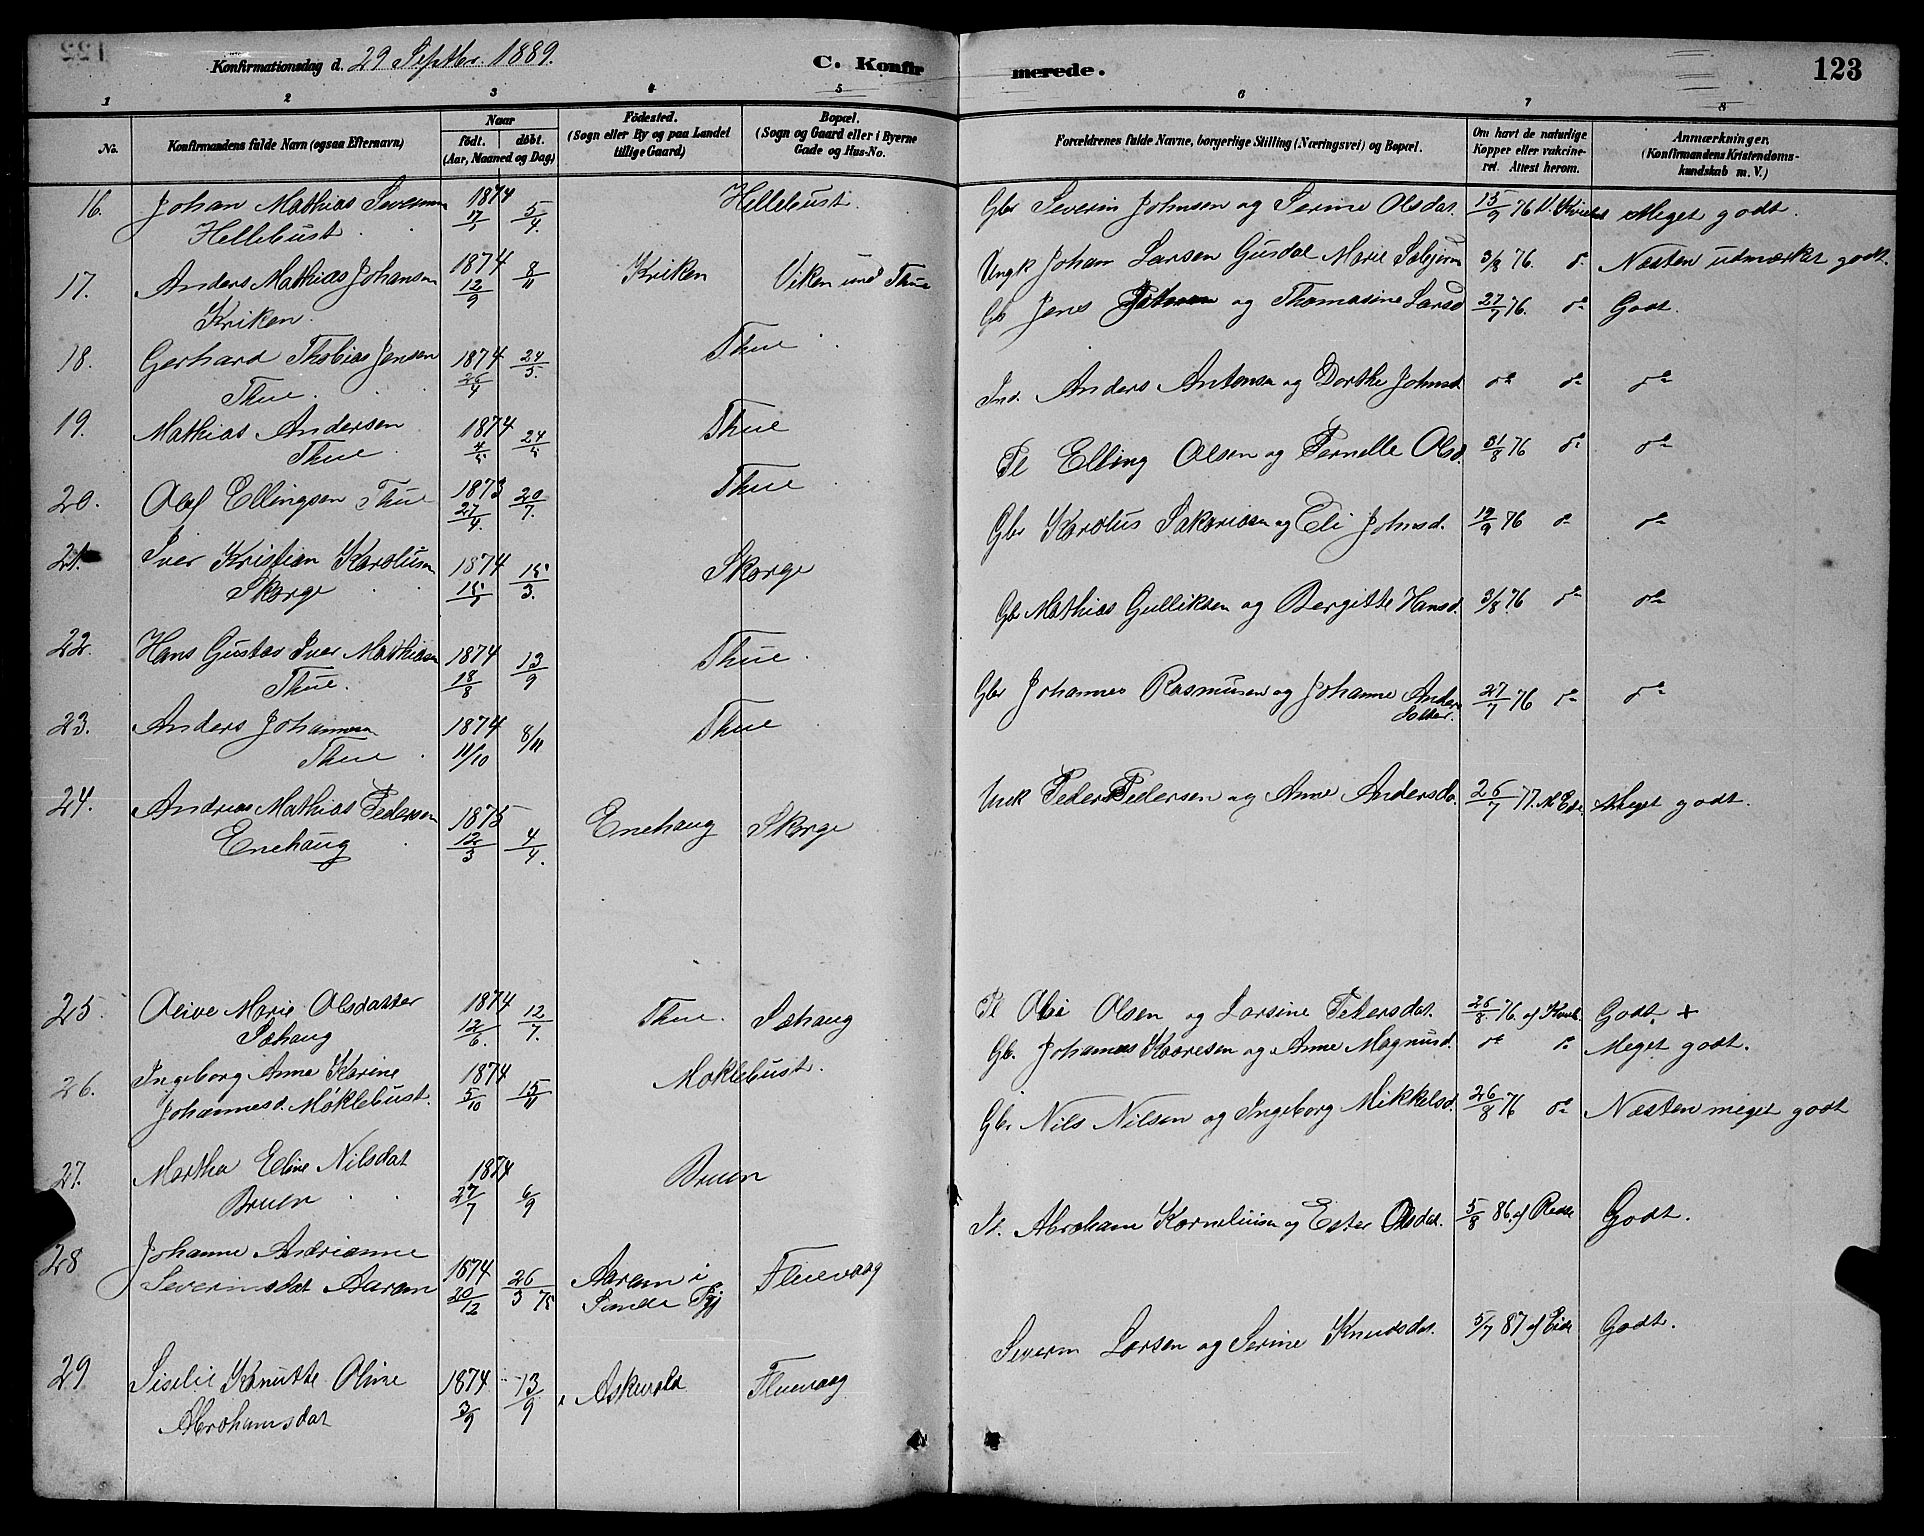 Konfirmationsdag d. 29 Septbr. 1889.
C. Konfir
merede.
123
1
2
3
4
5
6
7
8
No.
Konfirmandens fulde Navn (ogsaa Efternavn)
Naar
født.
døbt.
(Aar, Maaned og Dag)
Fødested.
(Sogn eller By og paa Landet
tillige Gaard)
Bopæl.
(Sogn og Gaard eller i Byerne
Gade og Hus-No.
Forældrenes fulde Navne, borgerlige Stilling (Næringsvei) og Bopæl.
Om havt de naturlige
Kopper eller vakcine-
ret. Attest herom.
Anmærkninger.
(Konfirmandens Kristendoms-
kundskab m. V.)
16. Johan Mathias Severinsen 1874 5/4 Hellebust. Gbr Severin Johnsen og Serine Olsdat. 15/9 76 Meget godt.
Hellebust
17. Anders Mathias Johansen 1874 12/9 8/11 Kriken Viken und Thue Ungk Johan Larsen Gusdal Marie 3/8 76. do Næsten udmærket godt.
Kriken.
18. Gerhard Thobias Jensen 1874 26/4 24/5. Thue Gb Jens Johnsen og Thomasine Larsd 27/7 76. do Godt.
Thue.
19. Mathias Andersen 1874 4/5 24/5 Thue Ind. Anders Antonsen og Dorthe Johnsd. do do do
Thue
20. Olaf Ellingsen Thue 1873 27/4. 20/7. Thue Pl Elling Olsen og Pernelle Olsd. 31/8 76 do do
21. Iver Kristian Karolusen 1874 15/3. Skorge Gbr Karolus Sakariasen og Eli Johnsd. 19/9 76 do do
Skorge
22. Hans Gustav Iver Mathiasen 1874 18/8 13/9 Thue Gb Mathias Gulliksen og Bergitte Hansd. 3/8 76 do do
Thue.
23. Anders Johannesen 1874 11/10 8/11 Thue Gbr Johannes Rasmusen og Johanne Anders 27/7 76 do do
Thue datter.
24. Andreas Mathias Pedersen 1875 12/3 4/4. Enehaug Skorge Unk Peder Pedersen og Anne Andersda. 26/7 77. Meget godt.
Enehaug
25. Olive Marie Olsdatter 1874 12/6. 12/7. Thue. Sæhaug Pl Ole Olsen og Larsine Petersdat. 26/8 76. Godt. +
Sæhaug
26. Ingeborg Anne Karine 1874 5/10 15/11 Moklebust. Gb. Johannes Kaaresen og Anne Magnusd. do do Meget godt.
Johannesd. Møklebust.
27. Martha Eline Nilsdat 1874 27/7 6/9 Bruen Gbr Nils Nilsen og Ingeborg Mikkelsd. 26/8 76 do Næsten meget godt
Bruen
28 Johanne Andrianne Pl. Abraham Korneliusen og Ester Olsdat. 5/8 86. Godt.
Severinsdat Aaram 1874 20/12 26/3 75 Aaram i Fluevaag
Sande
29 Siselie Knutthe Oline 1874 3/9 13/9 Askevold Fluevaag Severin Larsen og Serine Knudsdat. 5/7 87 af Eide Godt.
Abrahamsdat